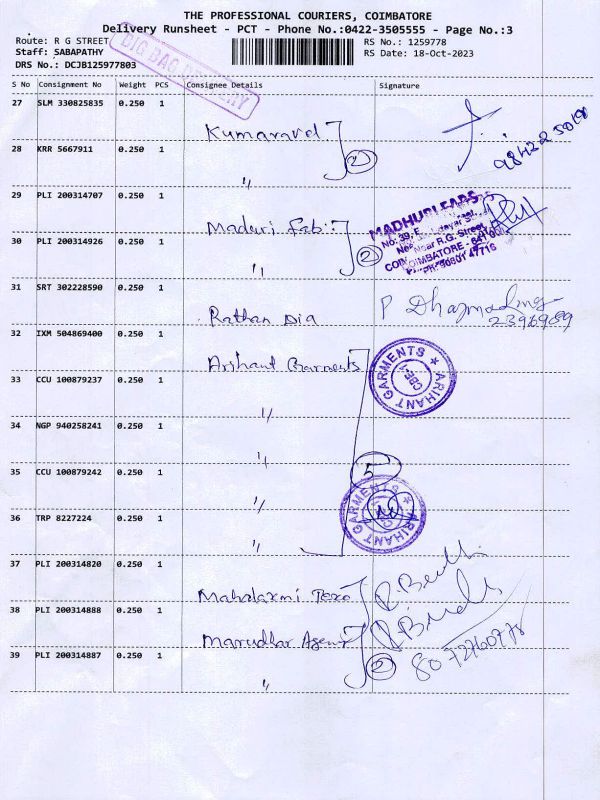 THE PROFESSIONAL COURIERS, COIMBATORE
Delivery Runsheet - PCT - Phone No.:0422-3505555 - Page No.:3
Route: R G STREET
Staff: SABAPATHY
DRS No.: DCJB125977803
RS No.: 1259778
RS Date: 18-Oct-2023
DIG BAG DELIVERY
S No Consignment No Weight PCS Consignee Details Signature
27 SLM 330825835 0.250 1 Kumaravel
28 KRR 5667911 0.250 1 〃 2
29 PLI 200314707 0.250 1 Maduri Fab
30 PLI 200314926 0.250 1 〃 2
MADHURI FABS
COIMBATORE - 641 001
31 SRT 302228590 0.250 1 Rathan Dia
32 IXM 504869400 0.250 1 Arihant Garments
33 CCU 100879237 0.250 1 〃
34 NGP 940258241 0.250 1 〃
35 CCU 100879242 0.250 1 〃 5
36 TRP 8227224 0.250 1 〃
ARIHANT GARMENTS ★
CBE-1
ARIHANT GARMENTS ★
37 PLI 200314820 0.250 1 Mahalaxmi Texo
38 PLI 200314888 0.250 1 Marudhar Agenc
39 PLI 200314887 0.250 1 〃 2
8072760778